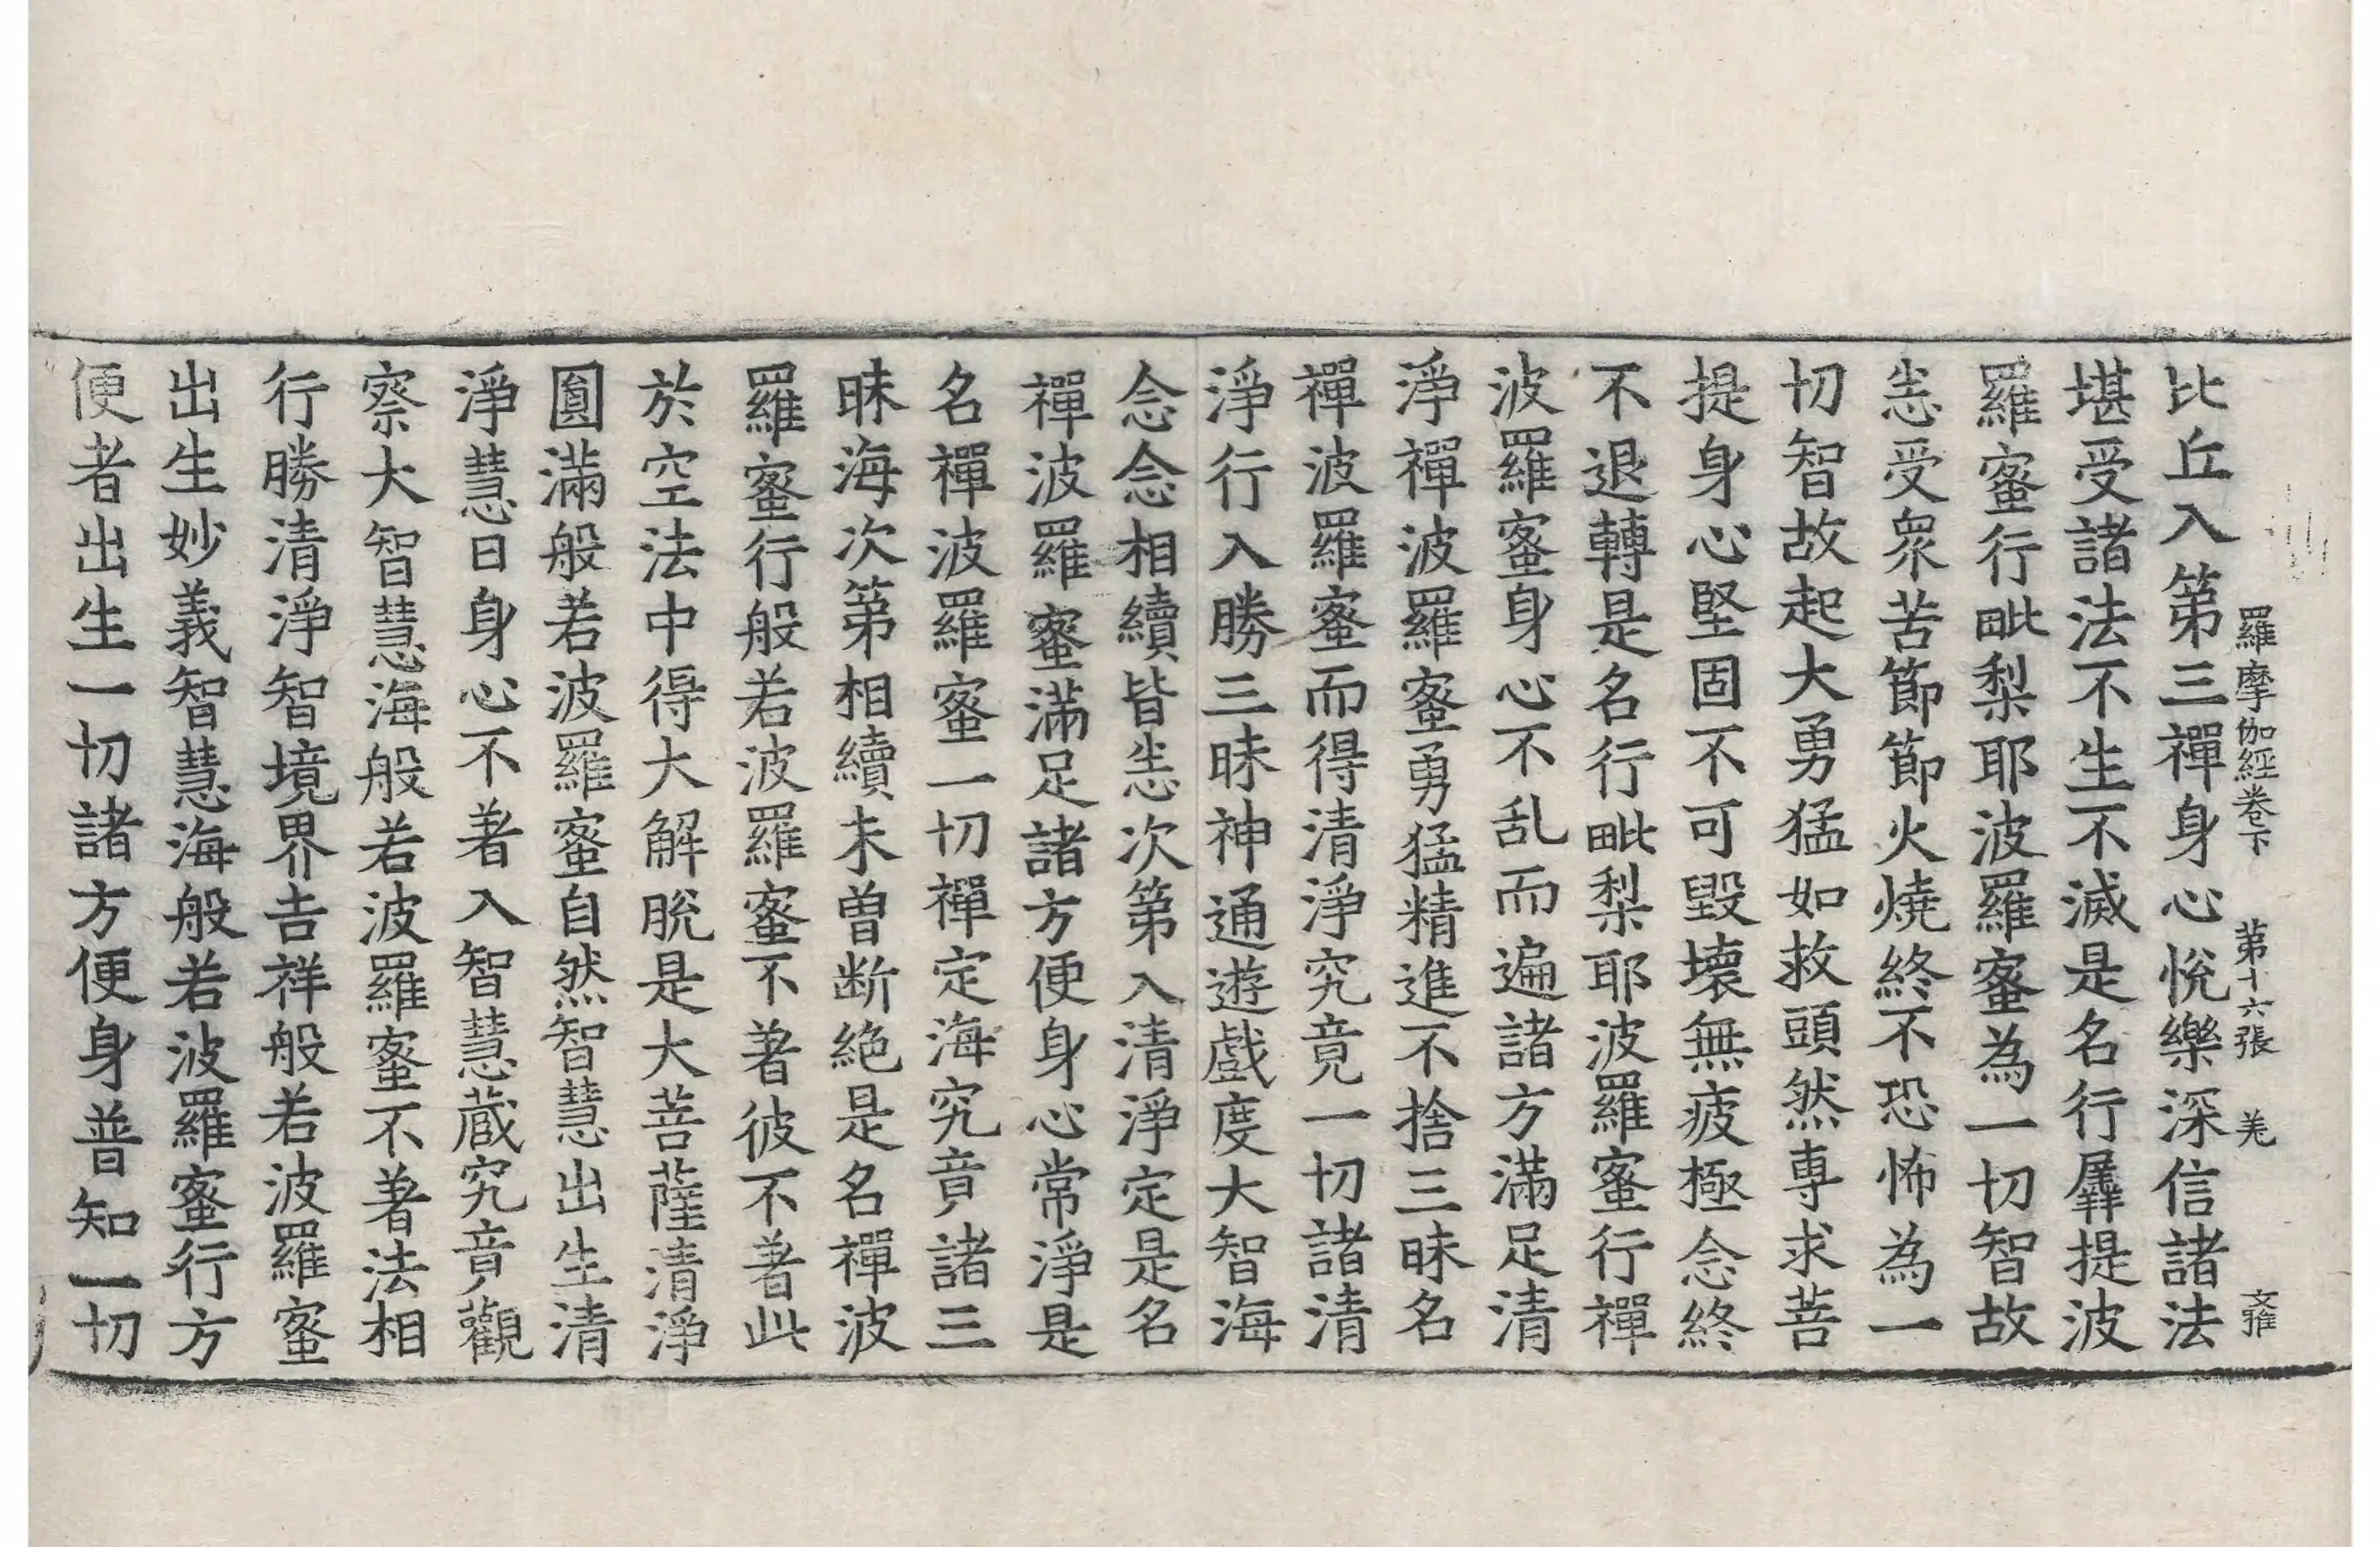 羅摩伽經卷下 第十六張 羌 文雅
比丘入第三禪身心悅樂深信諸法
堪受諸法不生不滅是名行羼提波
羅蜜行毗梨耶波羅蜜為一切智故
恙受衆苦節節火燒終不恐怖為一
切智故起大勇猛如救頭然専求菩
提身心堅固不可毀壞無疲極念終
不退轉是名行毗梨耶波羅蜜行禪
波羅蜜身心不乱而遍諸方滿足清
淨禪波羅蜜勇猛精進不捨三昧名
禪波羅蜜而得清淨究竟一切諸清
淨行入勝三昧神通遊戲度大智海
念念相續皆恙次第入清淨定是名
禪波羅蜜滿足諸方便身心常淨是
名禪波羅蜜一切禪定海究竟諸三
昧海次第相續未曽断絶是名禪波
羅蜜行般若波羅蜜不著彼不著此
於空法中得大解脫是大菩薩清淨
圓滿般若波羅蜜自然智慧出生清
淨慧日身心不著入智慧蔵究竟觀
察大智慧海般若波羅蜜不著法相
行勝清淨智境界吉祥般若波羅蜜
出生妙義智慧海般若波羅蜜行方
便者出生一切諸方便身普知一切